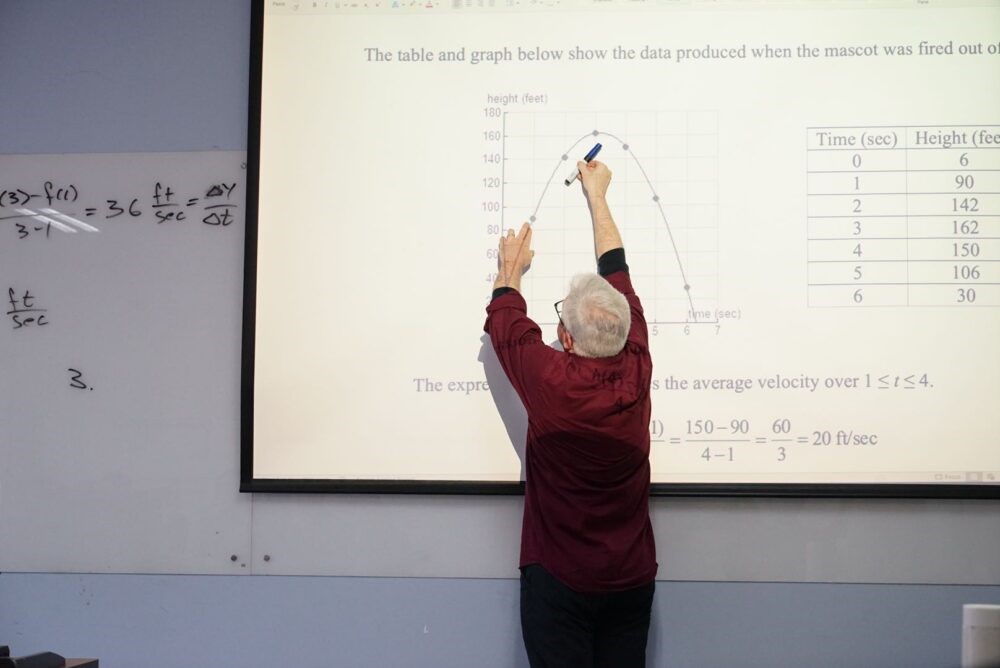 (3)-f(1) = 36 ft = ΔY
3-1 sec Δt
ft
sec
3.
The table and graph below show the data produced when the mascot was fired out of
height (feet)
180
160
140
120
100
80
60
40
time (sec)
5 6 7
Time (sec) Height (fee
0 6
1 90
2 142
3 162
4 150
5 106
6 30
The expre s the average velocity over 1 ≤ t ≤ 4.
1) = 150 – 90 = 60 = 20 ft/sec
4 – 1 3